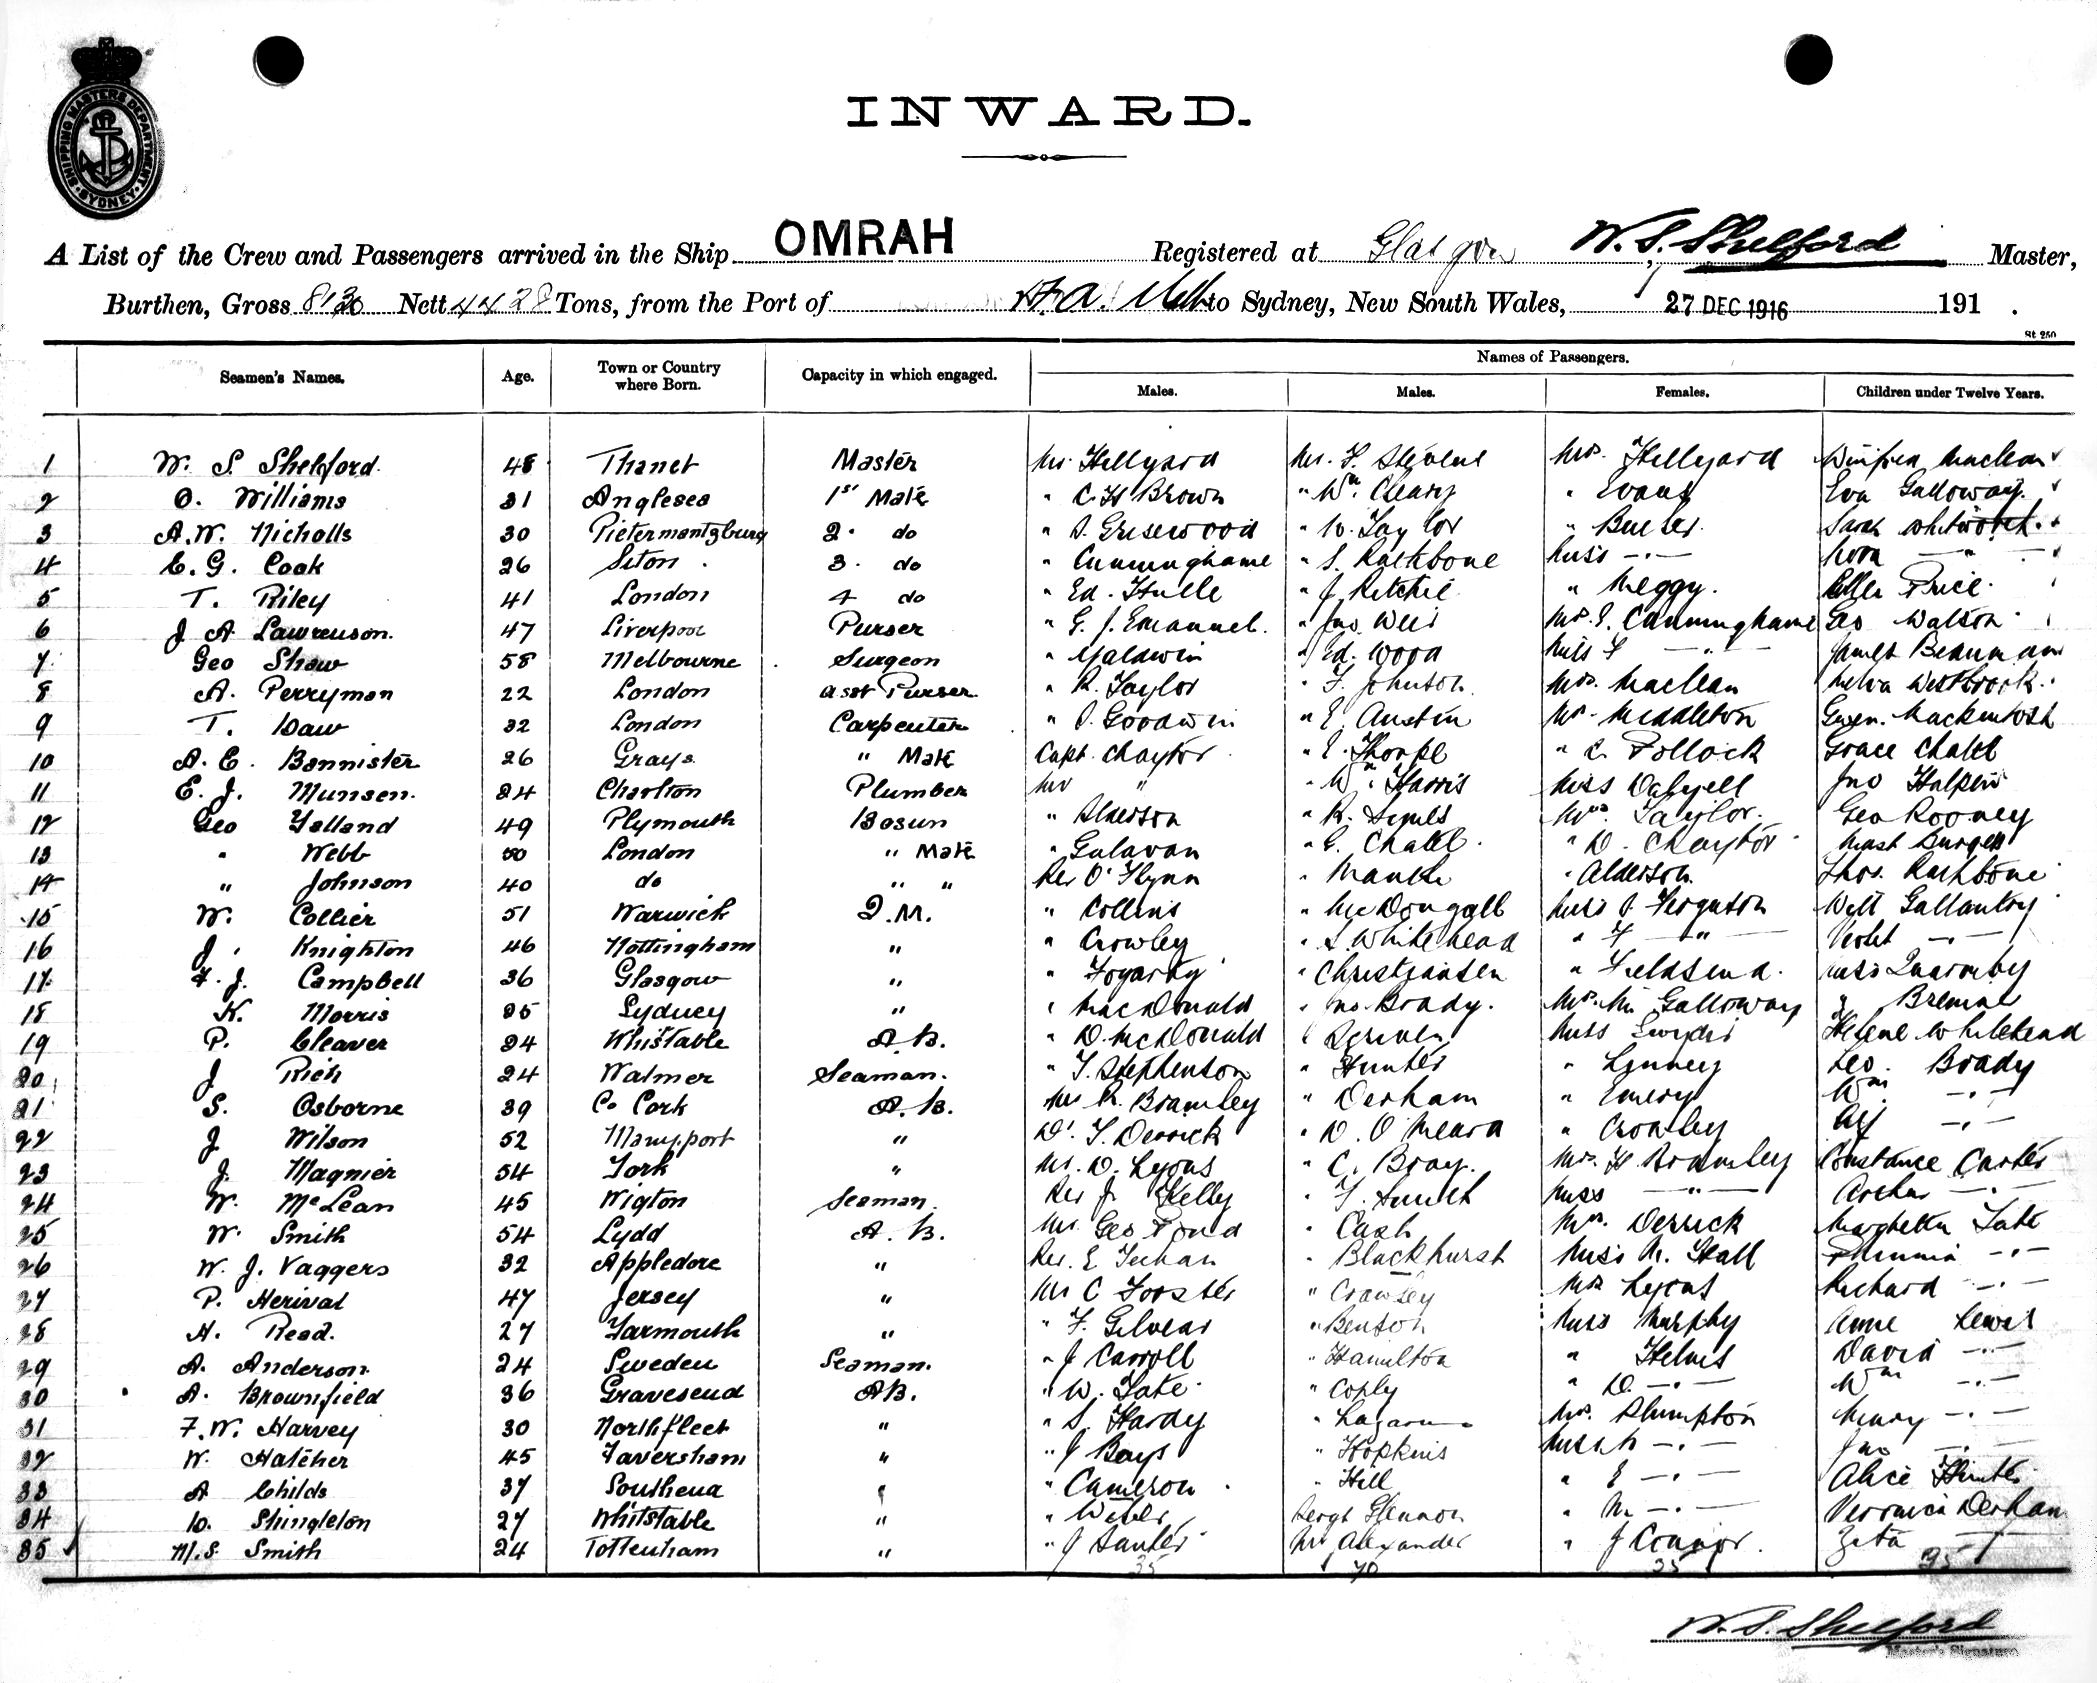 SHIPPING MASTERS DEPARTMENT · SYDNEY ·
INWARD.
A List of the Crew and Passengers arrived in the Ship OMRAH Registered at Glasgow W. S. Shelford Master,
Burthen, Gross 8130 Nett 4428 Tons, from the Port of to Sydney, New South Wales, 27 DEC 1916 191 .
St 250
Seamen's Names. Age. Town or Country where Born. Capacity in which engaged. Names of Passengers.
Males. Males. Females. Children under Twelve Years.
1 W. S. Shelford. 48 Thanet Master Mr. Hellyard Mr. F. Stevens Mrs. Hellyard Winifred Maclean
2 O. Williams 31 Anglesea 1st Mate " C. H. Brown " Wm Cleary " Evans Eva Galloway.
3 A. W. Nicholls 30 Pietermaritzburg 2. do " S. Grisewood " W. Taylor " Butler. Sarah Whitworth.
4 C. G. Cook 26 Seton 3. do " Cunninghame " S. Rathbone Miss — " — Nora — " —
5 T. Riley 41 London 4 do " Ed. Hulle " J. Ritchie " Meggy. Price.
6 J A Lawrenson. 47 Liverpool Purser " G. J. Emanuel. " Jno Weir Mrs. J. Cunninghame Geo Watson
7 Geo Shaw 58 Melbourne Surgeon " " Ed. Wood Miss F — " — James Beauman
8 A. Perryman 22 London asst Purser " R. Taylor " F. Johnson Mrs. Maclean Melva Westbrook.
9 T. Daw 32 London Carpenter " S. Goodwin " E. Austin Mrs. Middleton Gwen. Mackintosh
10 A. E. Bannister 26 Grays " Mate Capt. Chaytor " E. Thorpe " L. Pollock Grace Chalet
11 E. J. Munsen. 24 Charlton Plumber Mr " " Wm Harris Miss Dalyell Jno Halpin
12 Geo Yelland 49 Plymouth Bosun " Alderson " R. Symes Mrs. Taylor. Geo Rooney
13 " Webb 50 London " Mate " Galavan " E. Chalet. " D. Chaytor Mast Burgess
14 " Johnson 40 do " " Rev O'Flynn " " Alderson. Thos. Rathbone
15 W. Collier 51 Warwick Q. M. " Collins " McDougall Miss J. Ferguson Gallantry
16 J. Knighton 46 Nottingham " " Crowley " L Whitehead " F — " — Violet — " —
17 F. J. Campbell 36 Glasgow " " Fogarty " Christjansen " Fieldsend. Miss Quarmby
18 K. Morris 25 Lydney " " MacDonald " Jno Brady. Mrs. M. Galloway Bremne
19 P. Cleaver 24 Whitstable A. B. " D. McDonald " Scriven Miss Helene Whitehead
20 J Rich 24 Walmer Seaman. " T. Stephenson " Hunter " Lynney Leo. Brady
21 S. Osborne 39 Co Cork A. B. Mr R. Bramley " Derham " Emery Wm — " —
22 J Wilson 52 Maryport " Dr. T. Derrick " D. O'Meara " Crowley Alf — " —
23 J. Magnier 54 York " Mr. D. Lyons " C. Bray. Mrs. H Bramley Constance Carter
24 W. McLean 45 Wigton Seaman. Rev J. Kelly " T. Smith Miss — " — Arthur — " —
25 W. Smith 54 Lydd A. B. Mr. Geo Pond " Cash Mrs. Derrick Tate
26 W. J. Vaggers 32 Appledore " Rev. E Teehan " Blackhurst Miss M. Hall — " —
27 P. Herival 47 Jersey " Mr C Forster " Crawley Mrs Lyons Richard — " —
28 H. Read. 27 Yarmouth " " F. Gilvear " Benson Miss Murphy Anne Lewis
29 A. Anderson. 24 Sweden Seaman. " J Carroll " Hamilton " Helms David — " —
30 A. Brownfield 36 Gravesend AB. " W. Tate " Coply " D. — " — Wm — " —
31 F. W. Harvey 30 Northfleet " " S. Hardy " Lazarus Mrs. Plumpton Henry — " —
32 W. Hatcher 45 Faversham " " J Bays " Hopkins Miss — " — Jno — " —
33 A Childs 37 Southend " " Cameron " Hill " E — " — Alice Hunter
34 W. Shingleton 27 Whitstable " " Sergt Glennon " M — " — Veronica Derham
35 M. S. Smith 24 Tottenham " " J Hunter Mr Alexander " J Connor. Zeta — " —
35 70 35 35
W. S. Shelford
Master's Signature